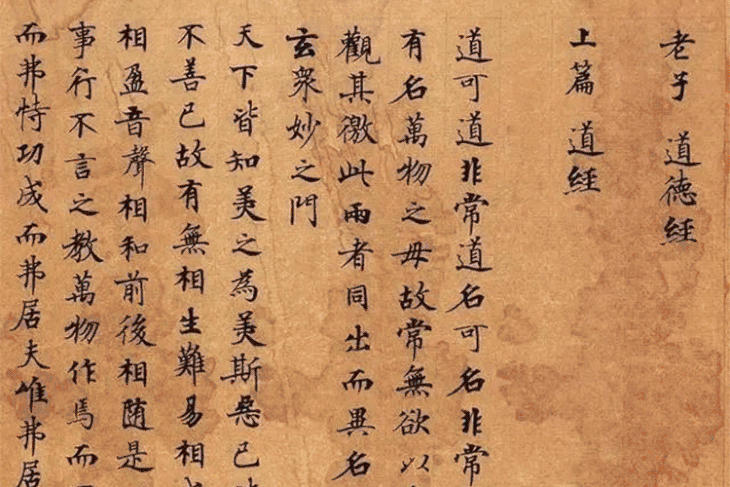 老子 道德經
上篇 道經
道可道非常道名可名非常
有名萬物之母故常無欲以
觀其徼此兩者同出而異名
玄衆妙之門
天下皆知美之為美斯惡已
不善已故有無相生難易相
相盈音聲相和前後相随是
事行不言之教萬物作焉而
而弗恃功成而弗居夫唯弗居